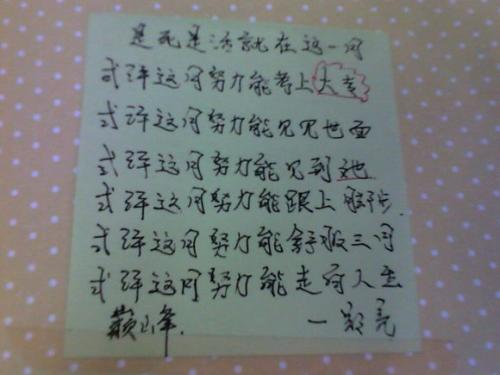 是死是活就在这一回
或许这回努力能考上大专
或许这回努力能见见世面
或许这回努力能见到她
或许这回努力能跟上脚步
或许这回努力能舒服三回
或许这回努力能走向人生
巅峰. 一郑亮